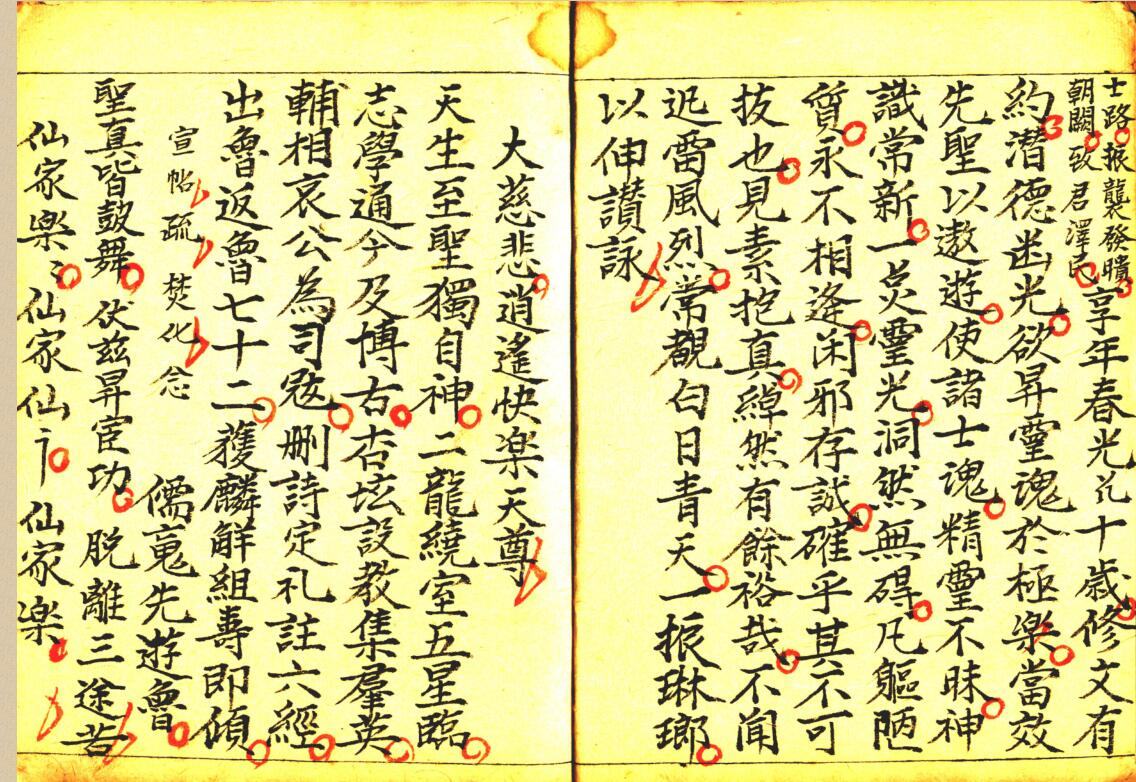 士路振襲發聵
朝闕致君澤民
享年春光花十歲修文有
約潛德幽光欲昇靈魂於極樂當效
先聖以遨遊使諸士魂精靈不昧神
識常新一炁靈光洞然無碍凢軀陋
質永不相逢闲邪存誠確乎其不可
拔也見素抱真綽然有餘裕哉不闻
迅雷風烈常覩白日青天一振琳瑯
以伸讃詠
大慈悲逍遙快楽天尊
天生至聖獨自神二龍繞室五星臨
志學通今及博古杏坛設教集羣英
輔相哀公為司寇删詩定礼註六經
出魯返魯七十二獲麟觧組壽即傾
宣帖疏焚化念
儒嵬先遊魯
聖真皆鼓舞伏兹昇宦功脱離三途苦
仙家楽〻仙家仙卩仙家楽